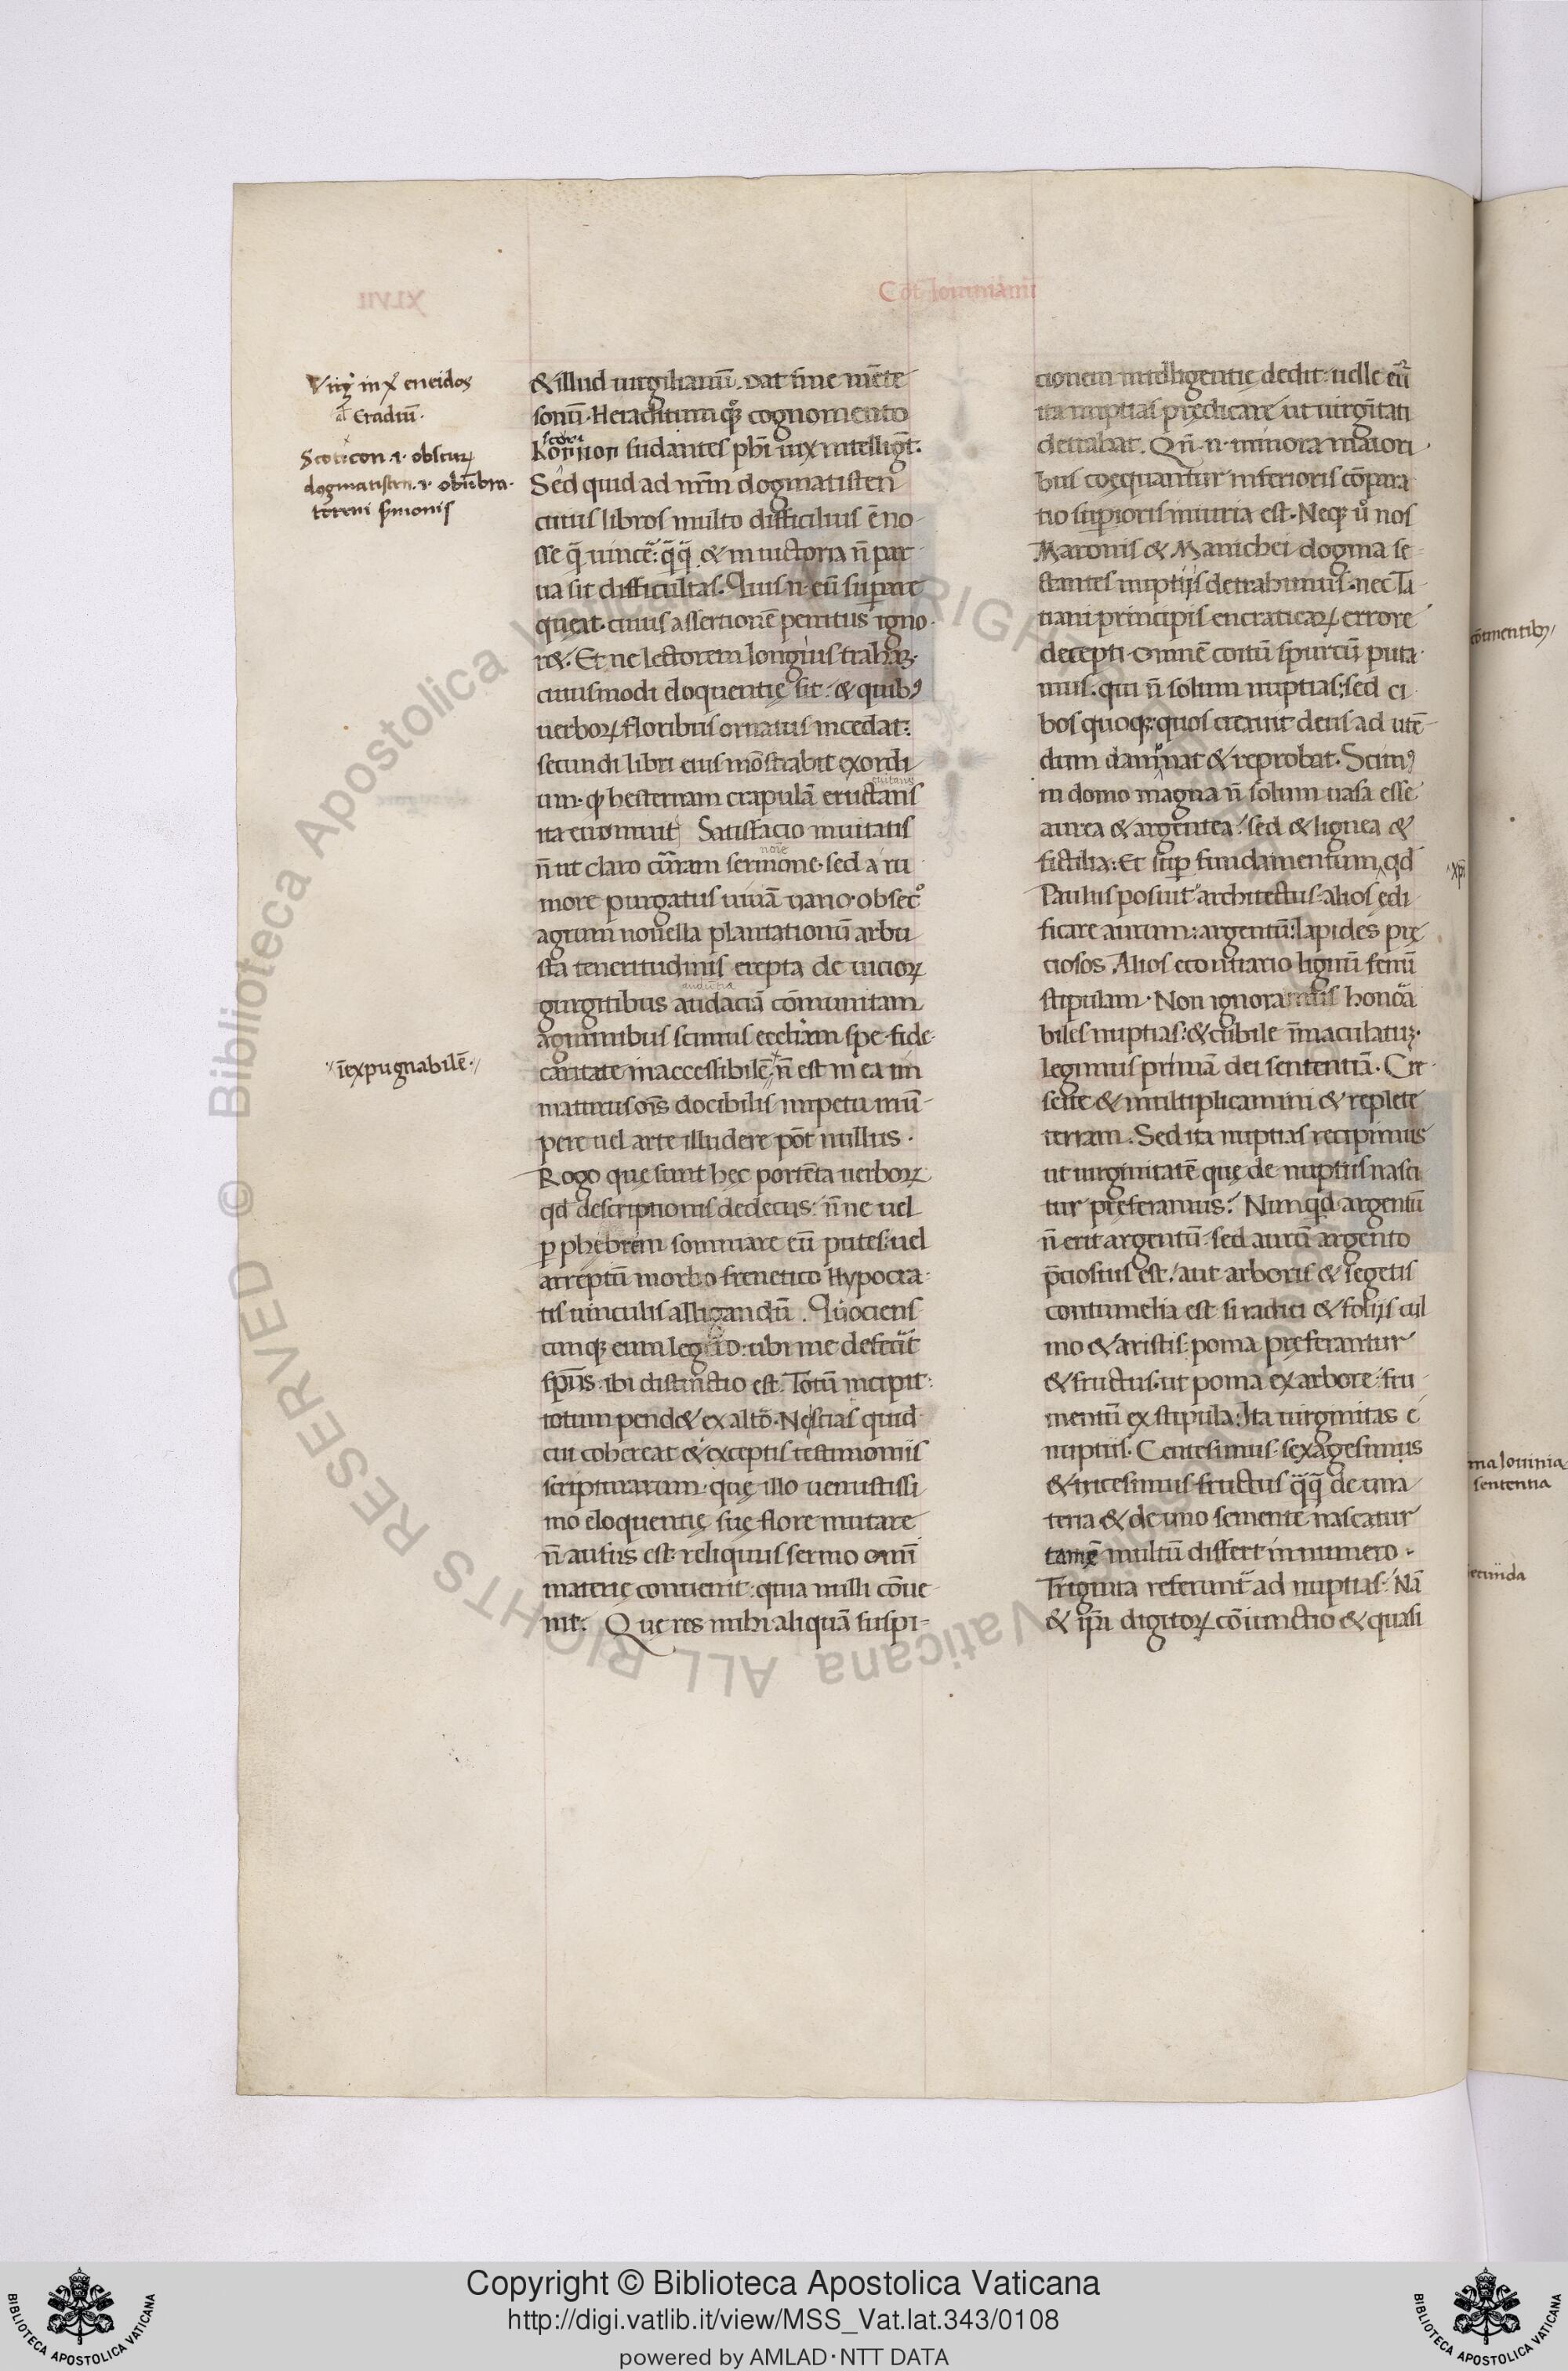 Cōt Iouinianū
Virg̓ in x̊ eneidos
al̄ Eradiū·
Scoticon .i. obscurꝝ
dogmatisten .i. obūbra-
tēreni sͫmonis
⁊expugnabilē·
& illud uirgilianū. Dat sine mēte
sonū· Heraclitum qꝫ cognomento
sudantes phī uix intelligūt:
Sed quid ad nr̄m dogmatisten
cuius libros multo difficilius ē no-
sse q̄ uincē: q̄q̄ & in uictoria n̄ par-
ua sit difficultas. Quis .n. eū supare
queat. cuius assertionē penitus igno-
r&. Et ne lectorem longius trahaꝫ.
cuiusmodi eloquentię sit: & quibꝰ
uerboꝝ floribus ornatus incedat:
secundi libri eius mōstrabit exordi
um. qͥ hesternam crapulā eructans
ita euomuit Satisfacio inuitatis
n̄ ut claro curram sermone. sed a ru
more purgatus uiuā uano. obsecͦ
agrum nouella plantationū arbu
sta teneritudinis erepta de uicioꝝ
gurgitibus audaciā cōmunitam
agminibus scimus ecclīam spe. fide.
caritate inaccessibilē n̄ est in ea im
maturus ōīs docibilis impetu irrū-
pere uel arte illudere pōt nullus.
Rogo quę sunt hęc portēta uerboꝝ
qd descriptionis dedecus: n̄ne uel
ꝑ phebrem somniare eū putes: uel
arreptū morbo frenetico Hypocra-
tis uinculis alligandū. Quociens
cunqꝫ eum legero: ubi me defecit
spūs. ibi distinctio est. Totū incipit:
totum pend& ex alto. Nescias quid
cui cohereat & exceptis testimoniis
scripturarum. quę illo uenustissi
mo eloquentię suę flore mutare
n̄ ausus est: reliquus sermo omni
materię conuenit: quia nulli cōue
nit. Quę res mihi aliquā suspi-
cionem intelligentię dedit: uelle eū
ita nuptias prędicare ut uirgītati
detrahat. Qn̄ .n. minora maiori
bus coęquantur inferioris cōpara
tio supioris iniuria est. Neqꝫ ů nos
Maronis & Manichei dogma se-
ctantes nuptijs detrahimus. nec Ta
tiani principis encraticaꝝ errore
decepti. omnē coitū spurcū puta-
mus. qui n̄ solum nuptias; sed ci
bos quoqꝫ quos creauit deus ad utē-
dum damnat & reprobat. Scimꝰ
in domo magna n̄ solum uasa esse
aurea & argentea: sed & lignea &
fictilia: Et sup fundamentum qd xp̄i
Paulus posuit architectus alios ędi
ficare aurum: argentū: lapides prę
ciosos. Alios econtrario lignū fenū
stipulam. Non ignoramus honoā
biles nuptias: & cubile īmaculatuꝫ.
legimus primā dei sententiā. Cre
scite & multiplicamini & replete
terram. Sed ita nuptias recipimus
ut uirginitatē quę de nuptiis nasci
tur pręferamus. Nunqd argentū
n̄ erit argentū. sed aurū argento
p̄ciosius est. aut arboris & segetis
contumelia est si radici & folijs cul
mo & aristis. poma pręferantur
& fructus. ut poma ex arbore. fru-
mentū ex stipula: Ita uirginitas e
nuptiis. Centesimus. sexagesimus
& tricesimus fructus q̄q̄ de una
terra & de uno semente nascatur
tamē multū differt in numero.
Triginta referunt̄ ad nuptias. Nā
& ip̄a digitoꝝ cōiunctio & quasi
cōtinentibꝫ
ma Iouinia
sententia
secūda
Copyright © Biblioteca Apostolica Vaticana
http://digi.vatlib.it/view/MSS_Vat.lat.343/0108
powered by AMLAD·NTT DATA
© Biblioteca Apostolica Vaticana ALL RIGHTS RESERVED
BIBLIOTECA APOSTOLICA VATICANA
BIBLIOTECA APOSTOLICA VATICANA